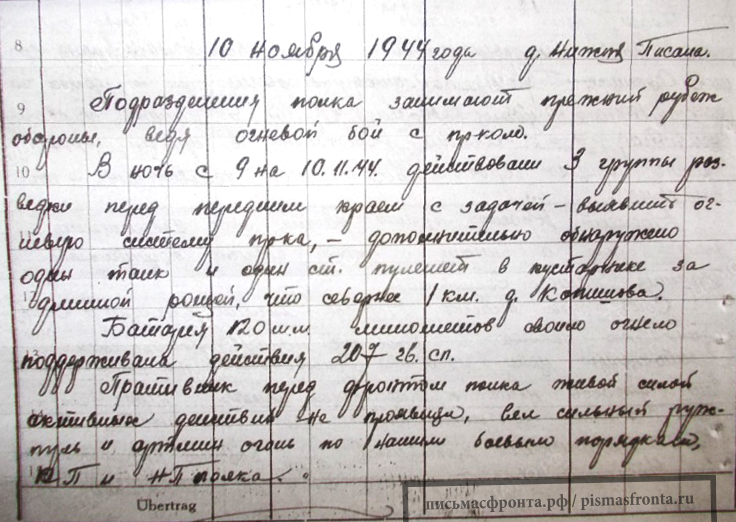 8
10 ноября 1944 года д. Нижня Писана.
9
Подразделения полка занимают прежний рубеж
обороны, ведя огневой бой с пр-ком.
10
В ночь с 9 на 10.11.44. действовали 3 группы раз-
ведки перед передним краем с задачей – выявить ог-
невую систему пр-ка, – дополнительно обнаружено
один танк и один ст. пулемет в кустарнике за
длинной рощей, что севернее 1 км. д.
Батарея 120 м.м. минометов своим огнем
поддерживала действия 207 гв. сп.
Противник перед фронтом полка живой силой
активных действий не проявлял, вел сильный руж-
пул. и артмин огонь по нашим боевым порядкам,
КП и НП полка.
Übertrag
письмасфронта.рф/ pismasfronta.ru